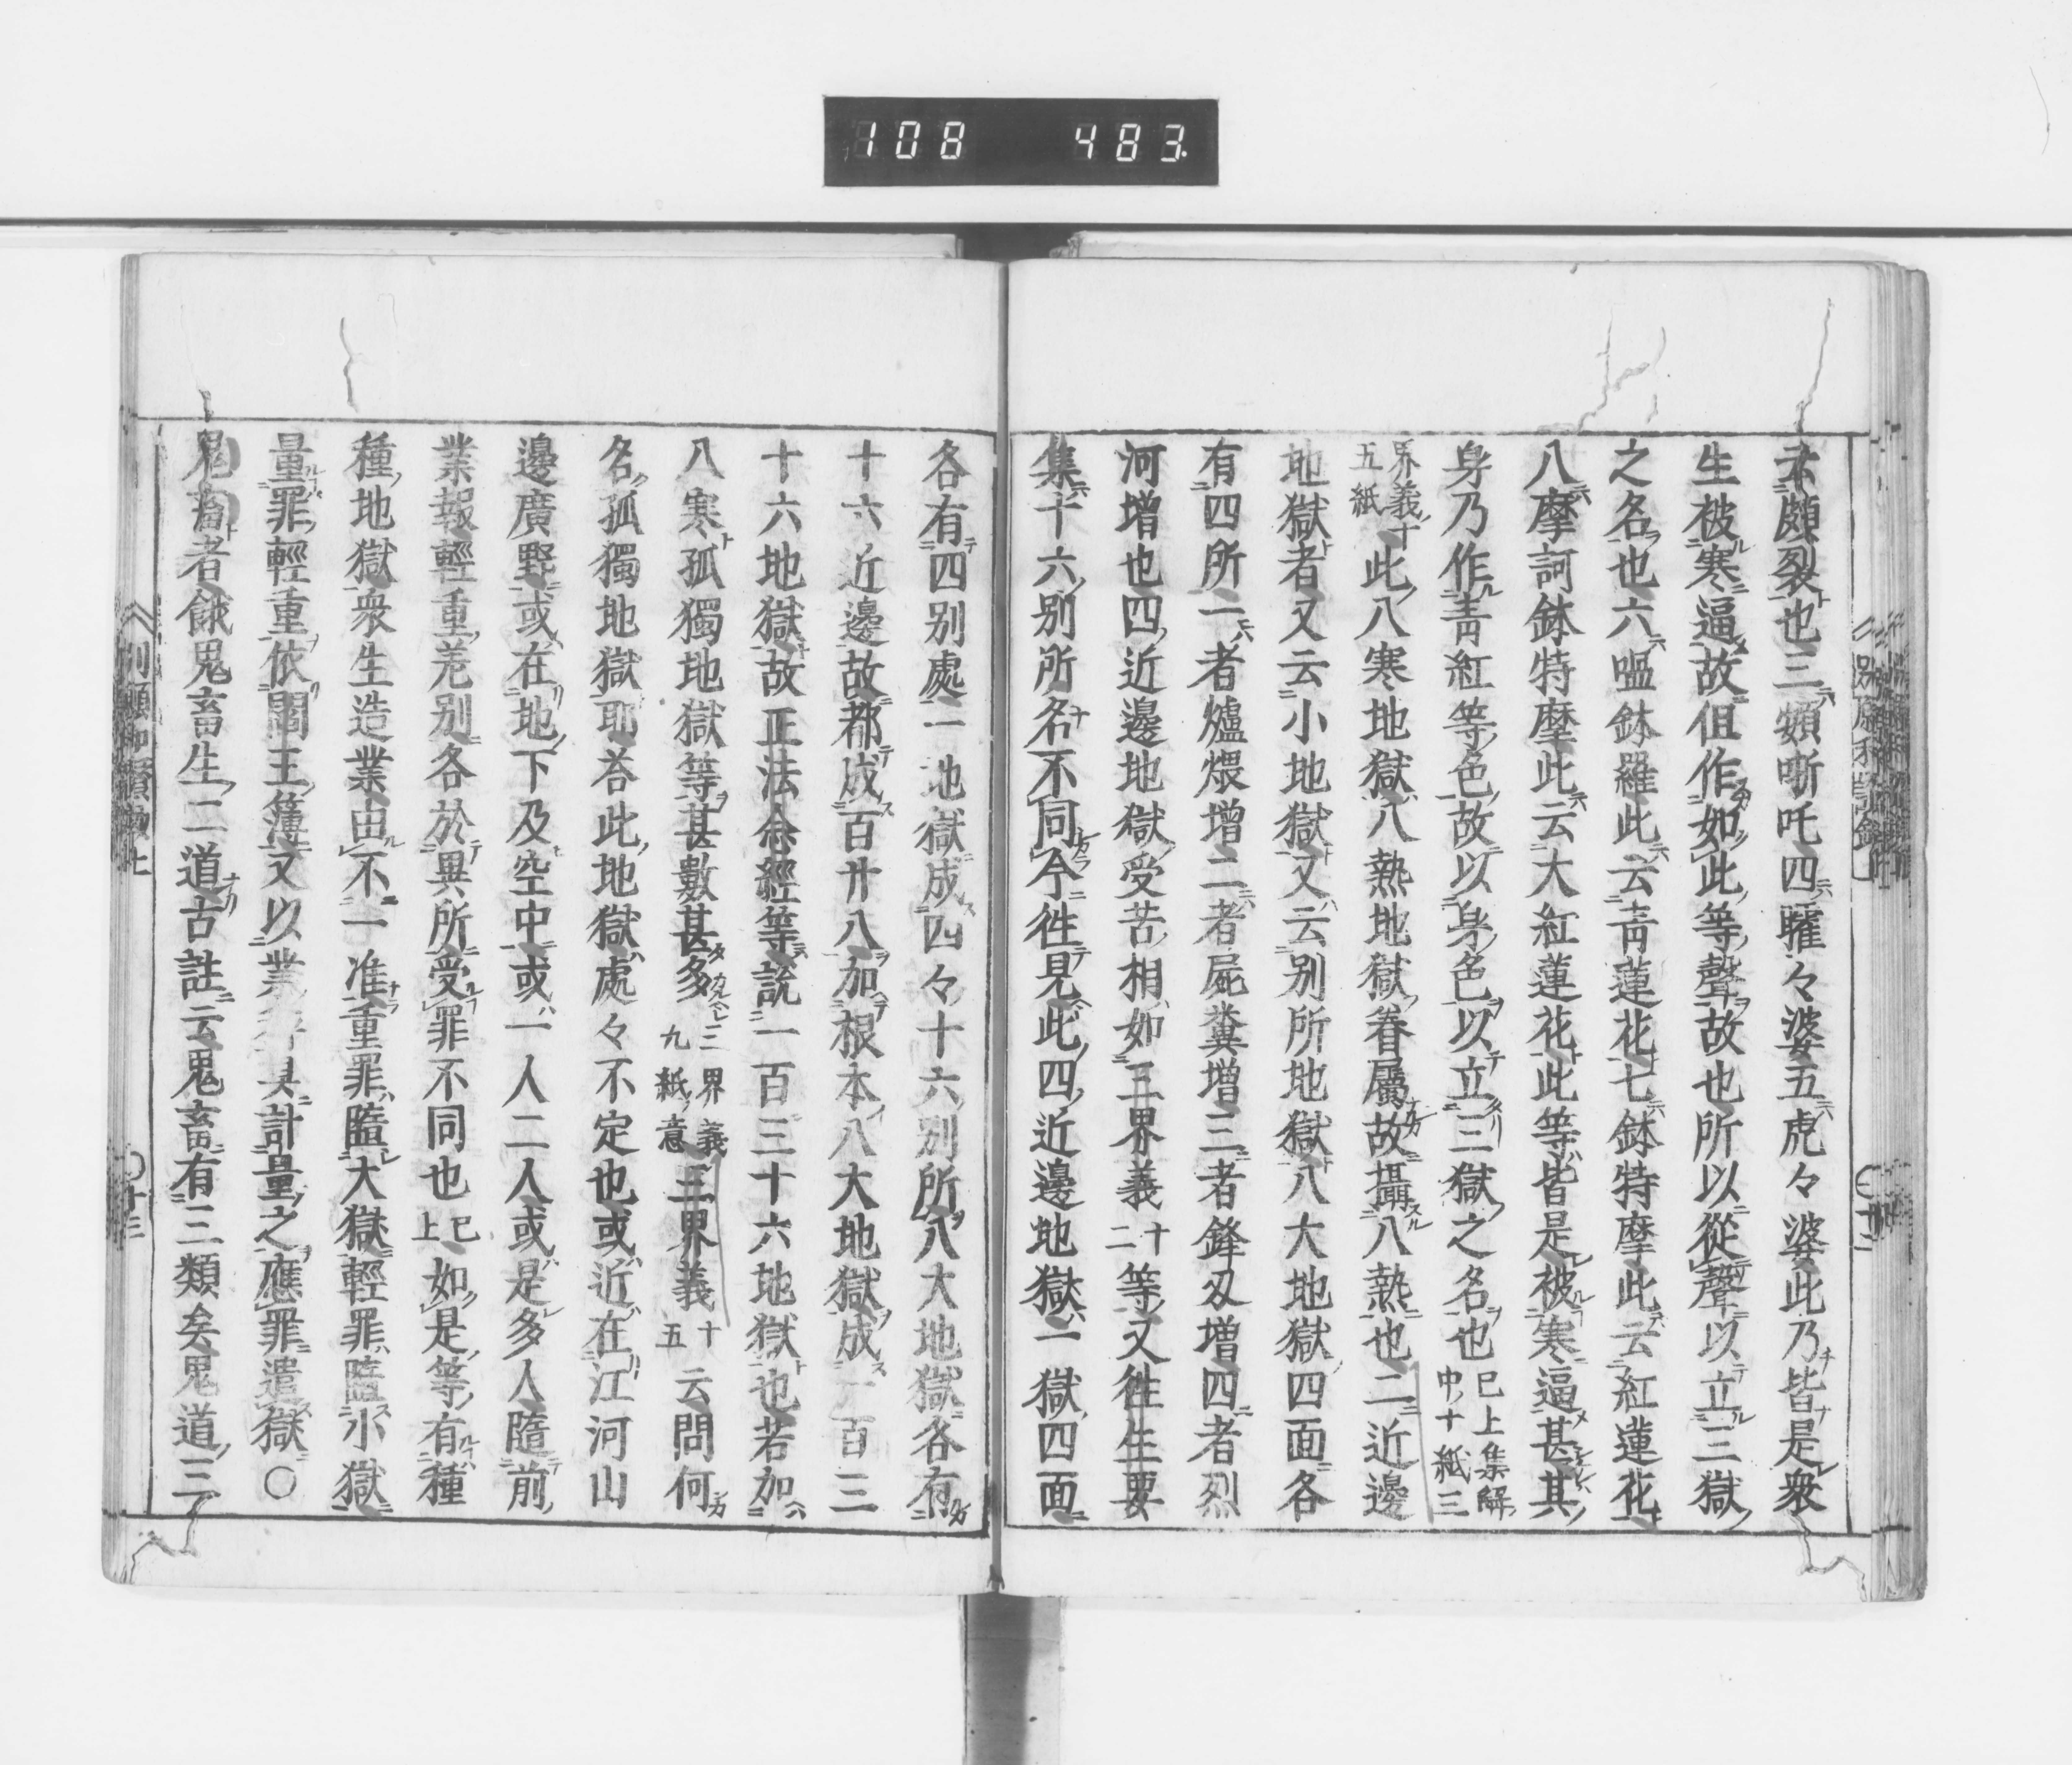 108 483
云皰裂也三頞哳吒四臛々婆五虎々婆此乃皆是衆
生被寒逼故但作如此等聲故也所以從聲以立三獄
之名也六嗢鉢羅此云青蓮花七鉢特摩此云紅蓮花
八摩訶鉢特摩此云大紅蓮花此等皆是被寒逼甚其
身乃作青紅等色故以身色以立三獄之名也已上集解中十紙三
界義十五紙此八寒地獄八熱地獄眷屬故攝八熱也二近邊
地獄者又云小地獄又云別所地獄八大地獄四面各
有四所一者爐煨增二者屍糞增三者鋒刄增四者烈
河增也四近邊地獄受苦相如三界義十二等又徃生要
集十六別所名不同今徃見此四近邊地獄一獄四面
各有四別處一地獄成四々十六別所八大地獄各有
十六近邊故都成百廿八加根本八大地獄成一百三
十六地獄故正法念經等說一百三十六地獄也若加
八寒孤獨地獄等甚數甚多三界義九紙意三界義十五云問何
名孤獨地獄耶荅此地獄處々不定也或近在江河山
邊廣野或在地下及空中或一人二人或是多人隨前
業報輕重差別各於異所受罪不同也已上如是等有種
種地獄衆生造業由不一准重罪墮大獄輕罪墮小獄
量罪輕重依閻王簿又以業秤具計量之應罪遣獄〇
鬼畜者餓鬼畜生二道古註云鬼畜有三類矣鬼道三
十三